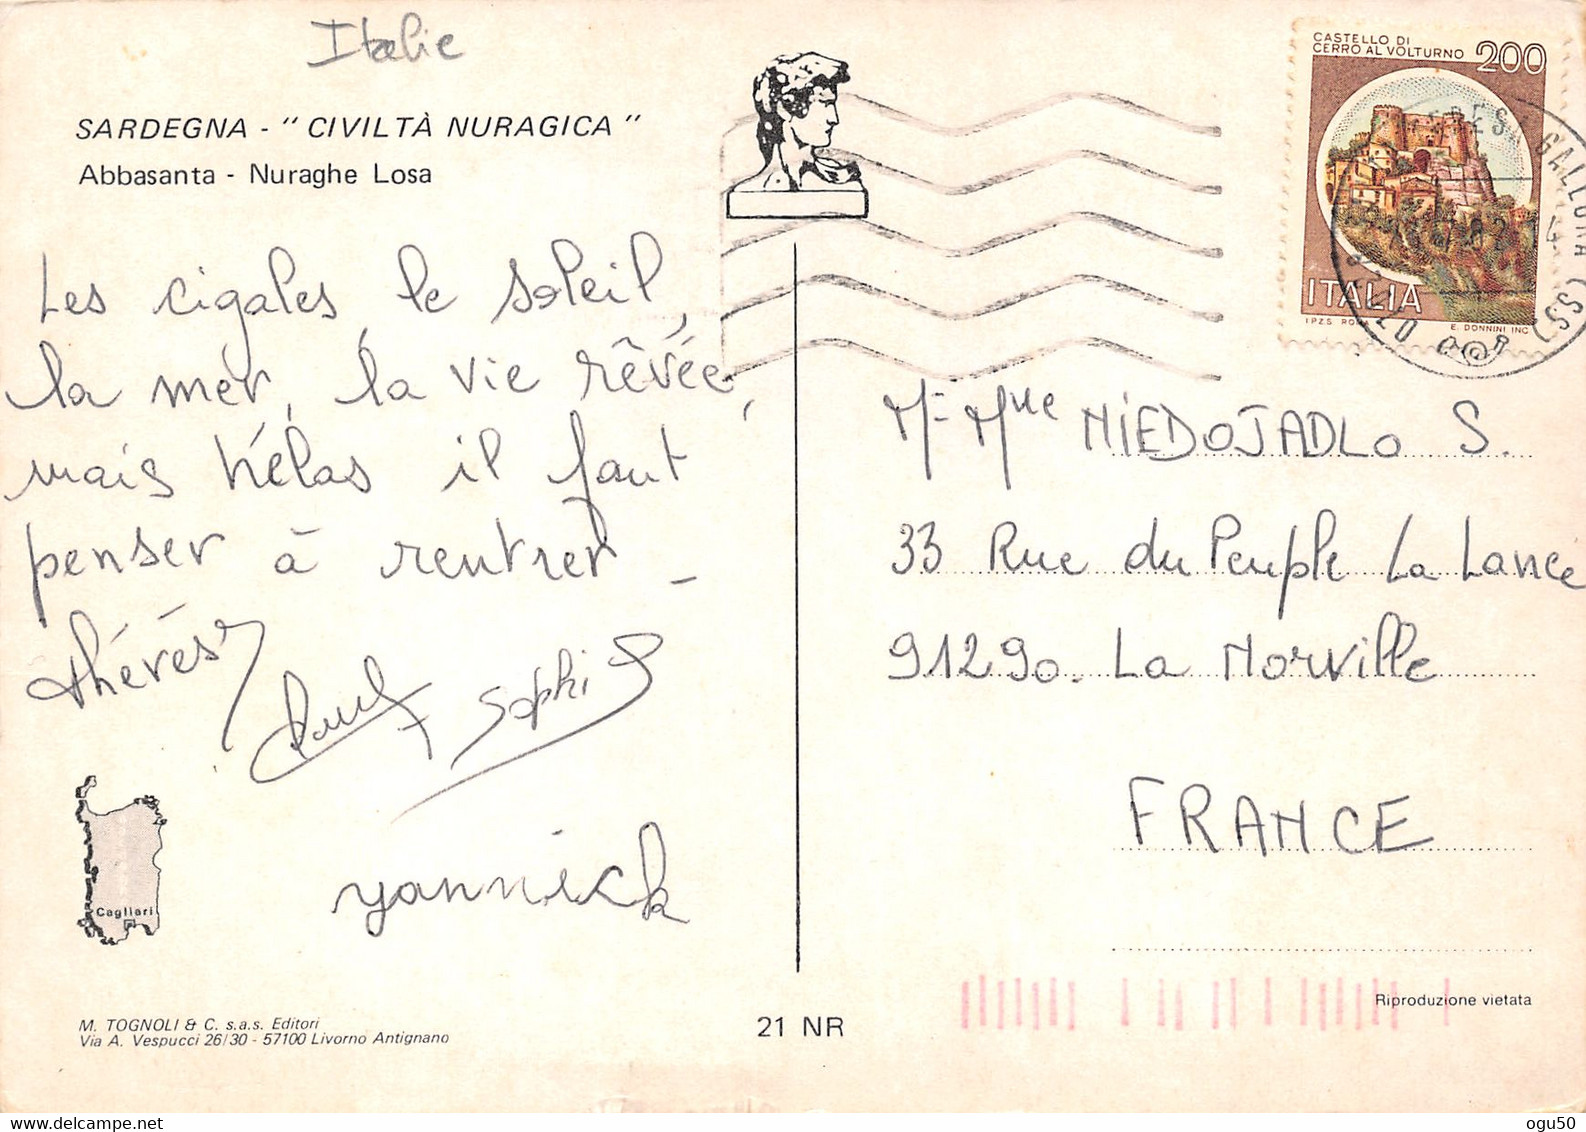 Italie
SARDEGNA - " CIVILTÀ NURAGICA "
Abbasanta - Nuraghe Losa
Les cigales, le soleil,
la mer, la vie rêvée,
mais hélas il faut
penser à rentrer –
thérés
Sophi
yannick
Cagliari
M. TOGNOLI & C. s.a.s. Editori
Via A. Vespucci 26/30 - 57100 Livorno Antignano
21 NR
CASTELLO DI
CERRO AL VOLTURNO 200
ITALIA
I.P.Z.S. ROMA E. DONNINI INC.
GALLURA (SS)
Mr Mme NIEDOJADLO S.
33 Rue du Peuple La Lance
91290. La Norville
FRANCE
Riproduzione vietata
delcampe.net
ogu50